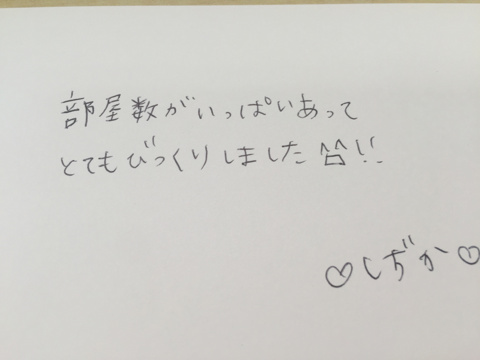 部屋数がいっぱいあって
とてもびっくりしました!!
♡しずか♡